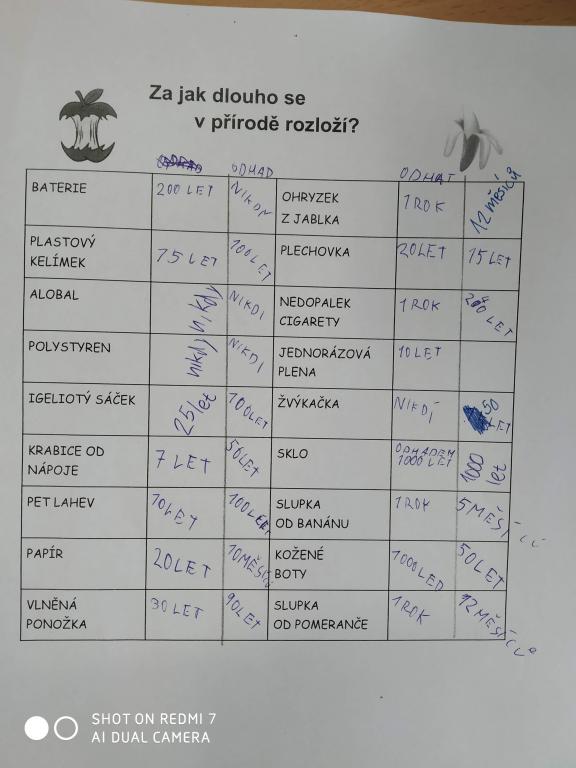 Za jak dlouho se
v přírodě rozloží?
ODHAD
ODHAT
BATERIE 200 LET NIKDY OHRYZEK Z JABLKA 1 ROK 12 měsíců
PLASTOVÝ KELÍMEK 75 LET 100 LET PLECHOVKA 20 LET 15 LET
ALOBAL nikdy NIKDI NEDOPALEK CIGARETY 1 ROK LET
POLYSTYREN nikdy NIKDI JEDNORÁZOVÁ PLENA 10 LET
IGELIOTÝ SÁČEK 25 let 100 LET ŽVÝKAČKA NIKDÍ 50 LET
KRABICE OD NÁPOJE 7 LET 50 LET SKLO ODHADEM 1000 LET 1000 let
PET LAHEV 10 LET 100 LET SLUPKA OD BANÁNU 1 ROK 5 MĚSÍCŮ
PAPÍR 20 LET 10 MĚSÍCŮ KOŽENÉ BOTY 1000 LED 50 LET
VLNĚNÁ PONOŽKA 30 LET 90 LET SLUPKA OD POMERANČE 1 ROK 12 MĚSÍCŮ
SHOT ON REDMI 7
AI DUAL CAMERA